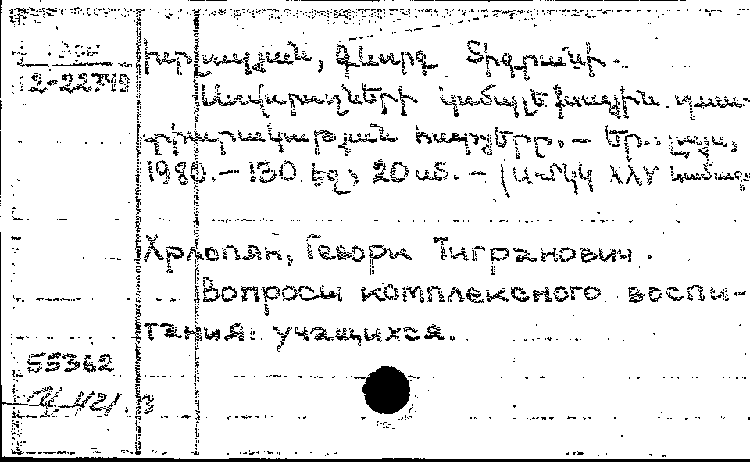 2-22749
Խրլոպյան, Գևորգ Տիգրանի.
Աշակերտների կոմպլեքսային դաս-
տիարակության հարցերը. — Եր.: Լույս,
1980. — 130 էջ, 20 սմ. — (ՍՄԿԿ XXV համագ
Хрлопян, Геворк Тигранович.
Вопросы комплексного воспи-
тания учащихся.
55362